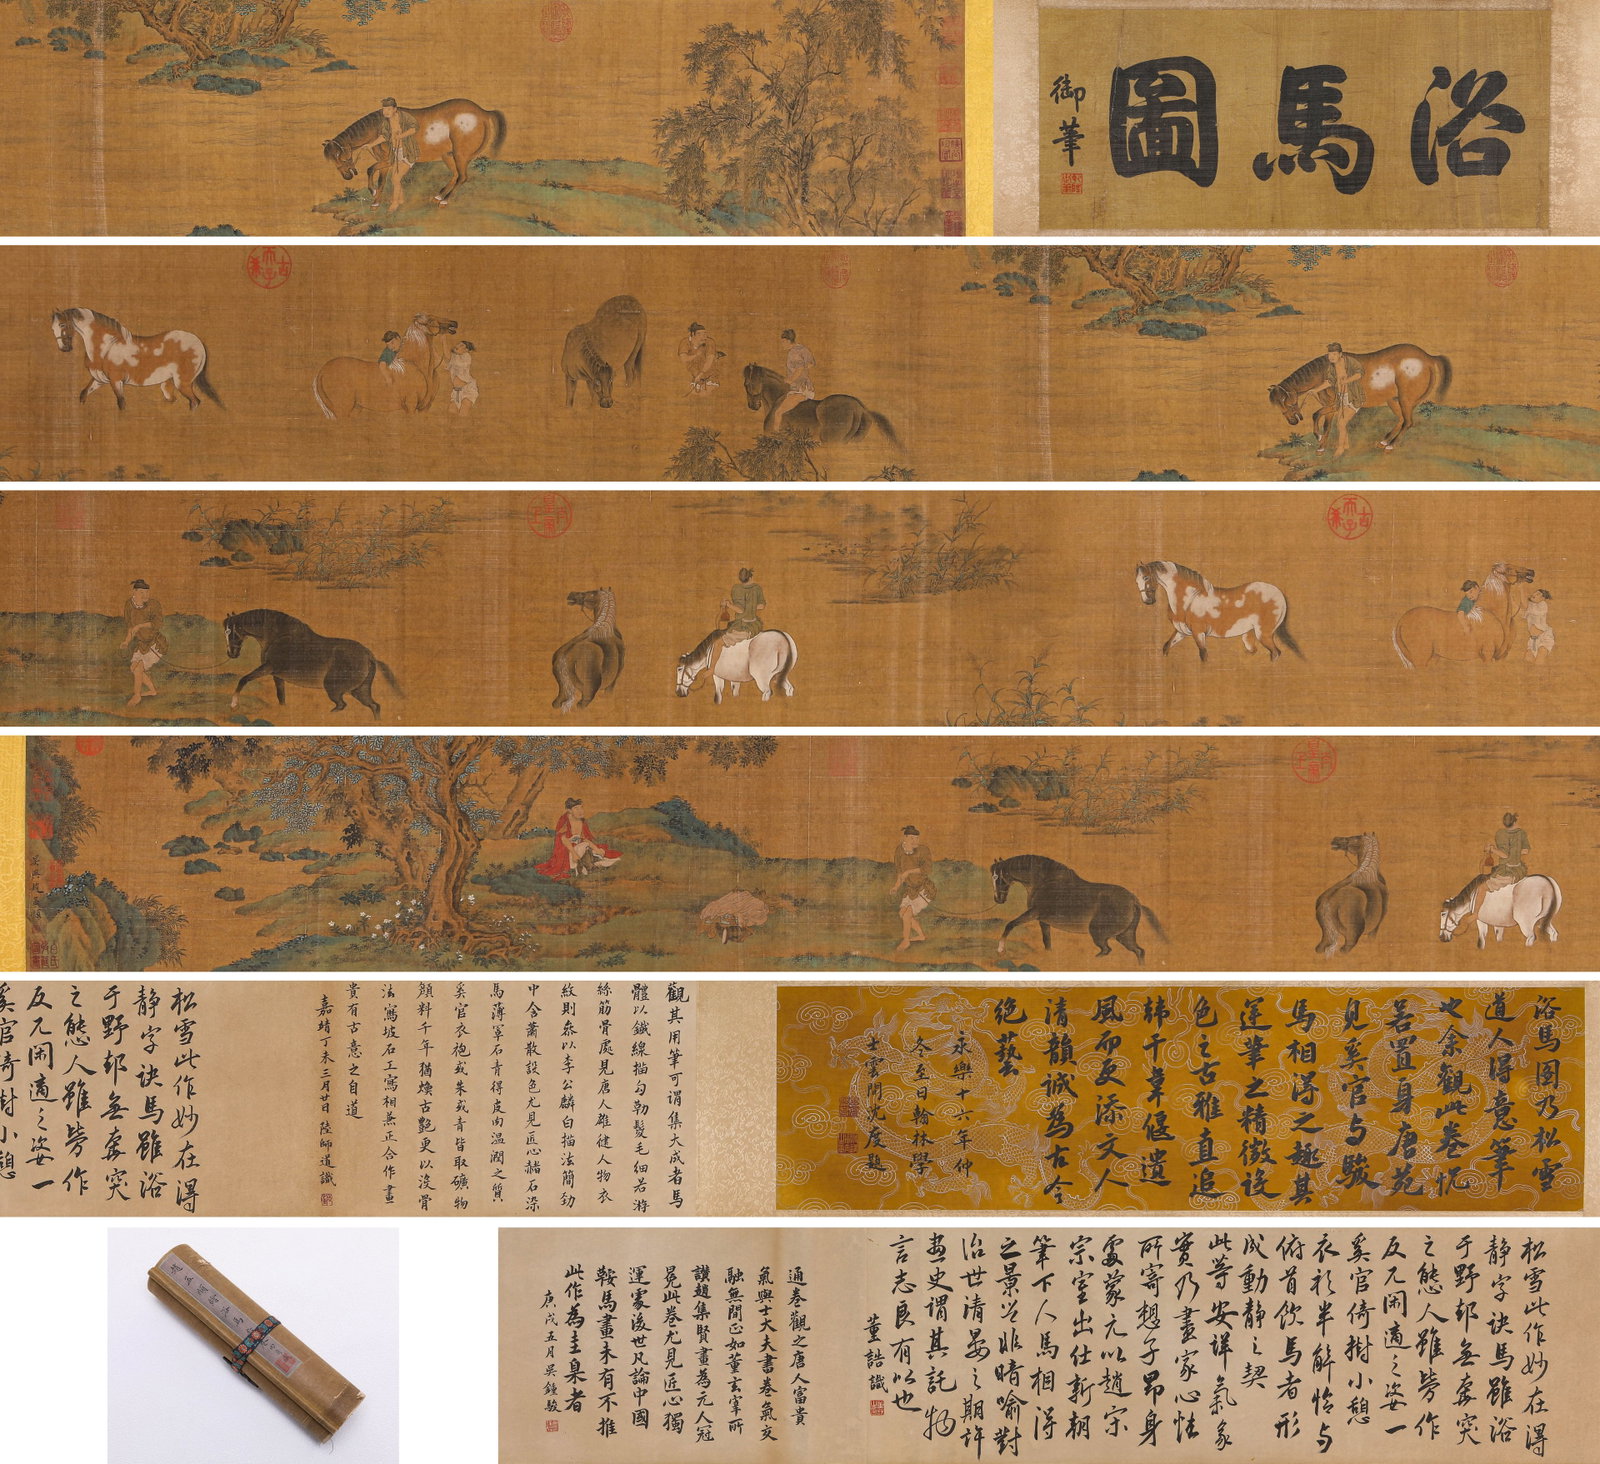 浴馬圖
御筆
古希天子
古希天子
浴馬圖乃松雪
道人得意筆
也余觀此卷恍
若置身唐苑
見奚官与駿
馬相得之趣其
運筆之精微設
色之古雅直追
韩干韋偃遺
風而更添文人
清韻誠為古今
绝藝
永樂十六年仲
冬至日翰林學
士雲間沈度題
觀其用筆可謂集大成者馬
體以鐵線描勾勒鬃毛細若游
絲筋骨處見唐人雄健人物衣
紋則參以李公麟白描法簡勁
中含蕭散設色尤見匠心赭石染
馬薄罩石青得皮肉温潤之質
奚官衣袍或朱或青皆取礦物
顏料千年猶煥古艷更以没骨
法寫坡石工寫相兼正合作畫
貴有古意之自道
嘉靖丁未三月廿日陸師道識
松雪此作妙在得
静字诀馬雖浴
于野却無奔突
之態人雖勞作
反見閑適之姿一
奚官倚樹小憩
松雪此作妙在得
静字诀馬雖浴
于野却無奔突
之態人雖勞作
反見閑適之姿一
奚官倚樹小憩
衣衫半解恰与
俯首飲馬者形
成動静之契
此等安詳氣象
實乃畫家心性
所寄想子昂身
處蒙元以趙宋
宗室出仕新朝
筆下人馬相得
之景豈非暗喻對
治世清晏之期許
畫史謂其託物
言志良有以也
董誥識
通卷觀之唐人富貴
氣與士大夫書卷氣交
融無間正如董玄宰所
讚趙集賢畫為元人冠
冕此卷尤見匠心獨
運處後世凡論中國
鞍馬畫未有不推
此作為圭臬者
庚戌五月吴鍾駿